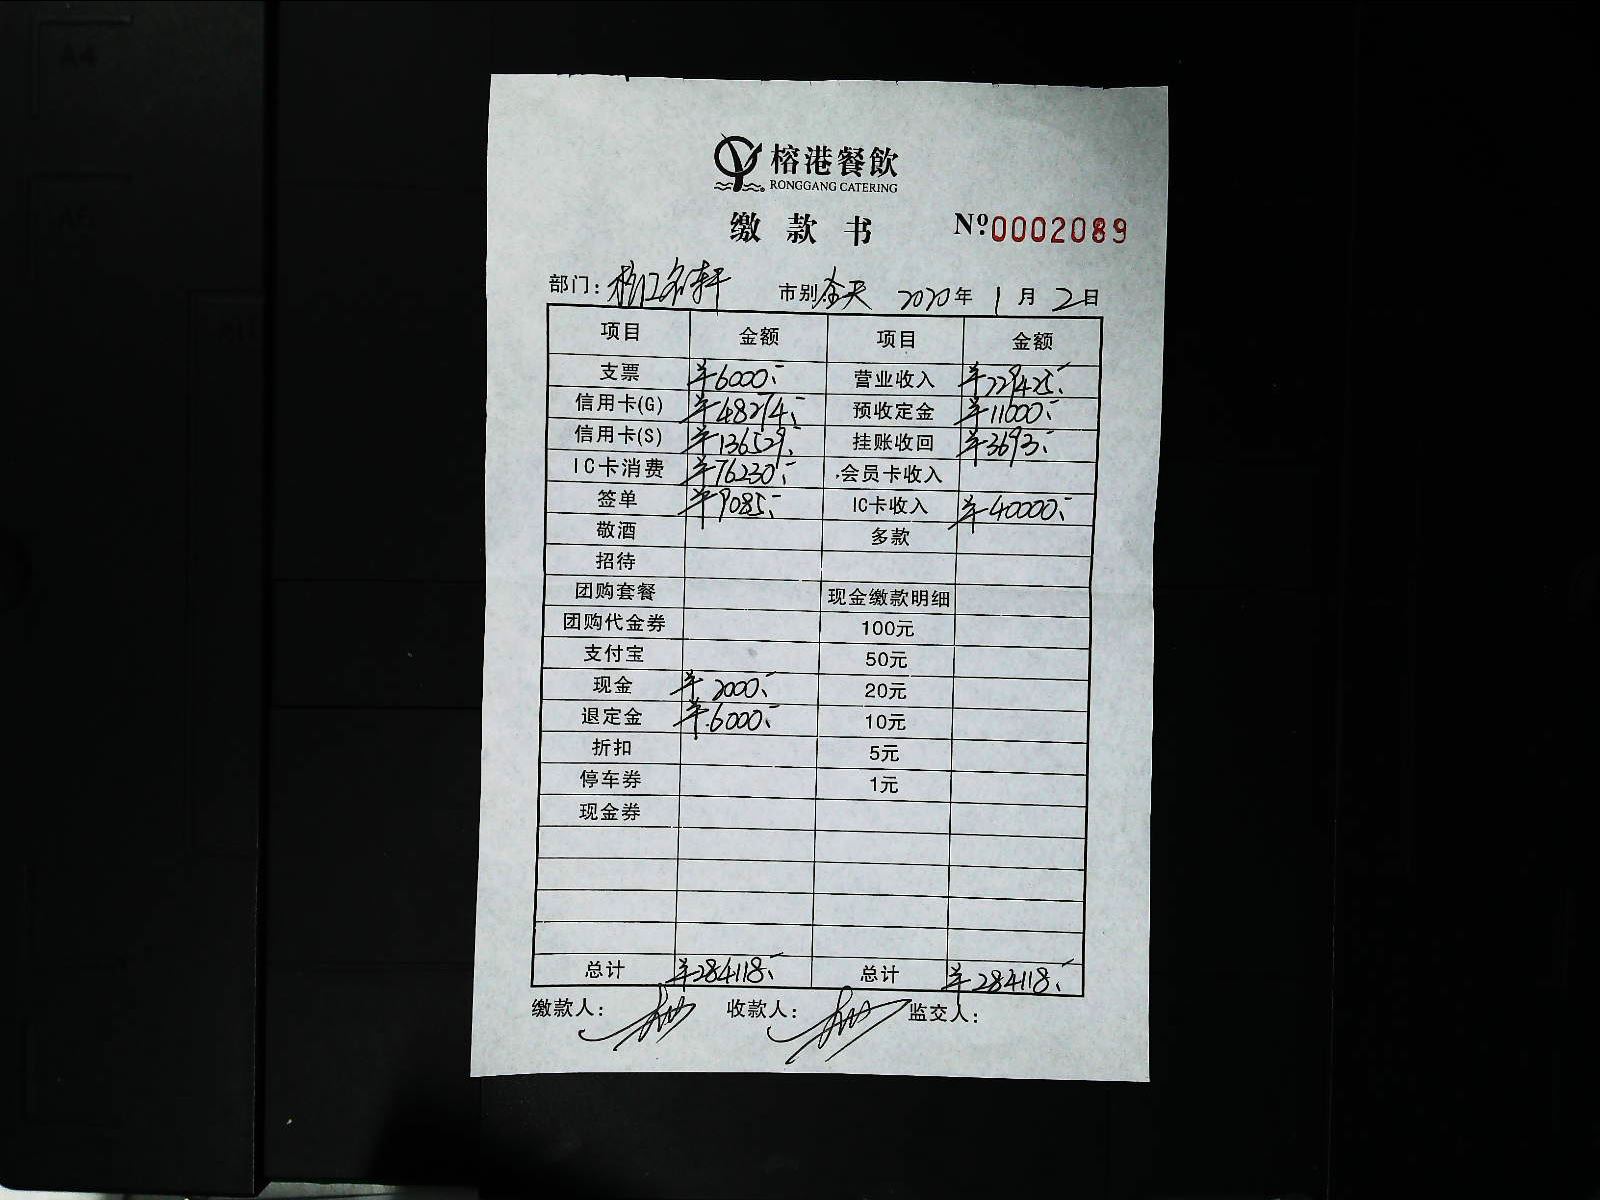 榕港餐飲
RONGGANG CATERING
缴款书 Nº:0002089
部门: 榕江名轩 市别 全天 2020年 1月 2日
项目 金额 项目 金额
支票 ¥6000.- 营业收入 ¥229425.-
信用卡(G) ¥48274.- 预收定金 ¥11000.-
信用卡(S) ¥136529.- 挂账收回 ¥3693.-
IC卡消费 ¥76230.- 会员卡收入
签单 ¥9085.- IC卡收入 ¥40000.-
敬酒 多款
招待
团购套餐 现金缴款明细
团购代金券 100元
支付宝 50元
现金 ¥2000.- 20元
退定金 ¥6000.- 10元
折扣 5元
停车券 1元
现金券
总计 ¥284118.- 总计 ¥284118.-
缴款人: 收款人: 监交人: